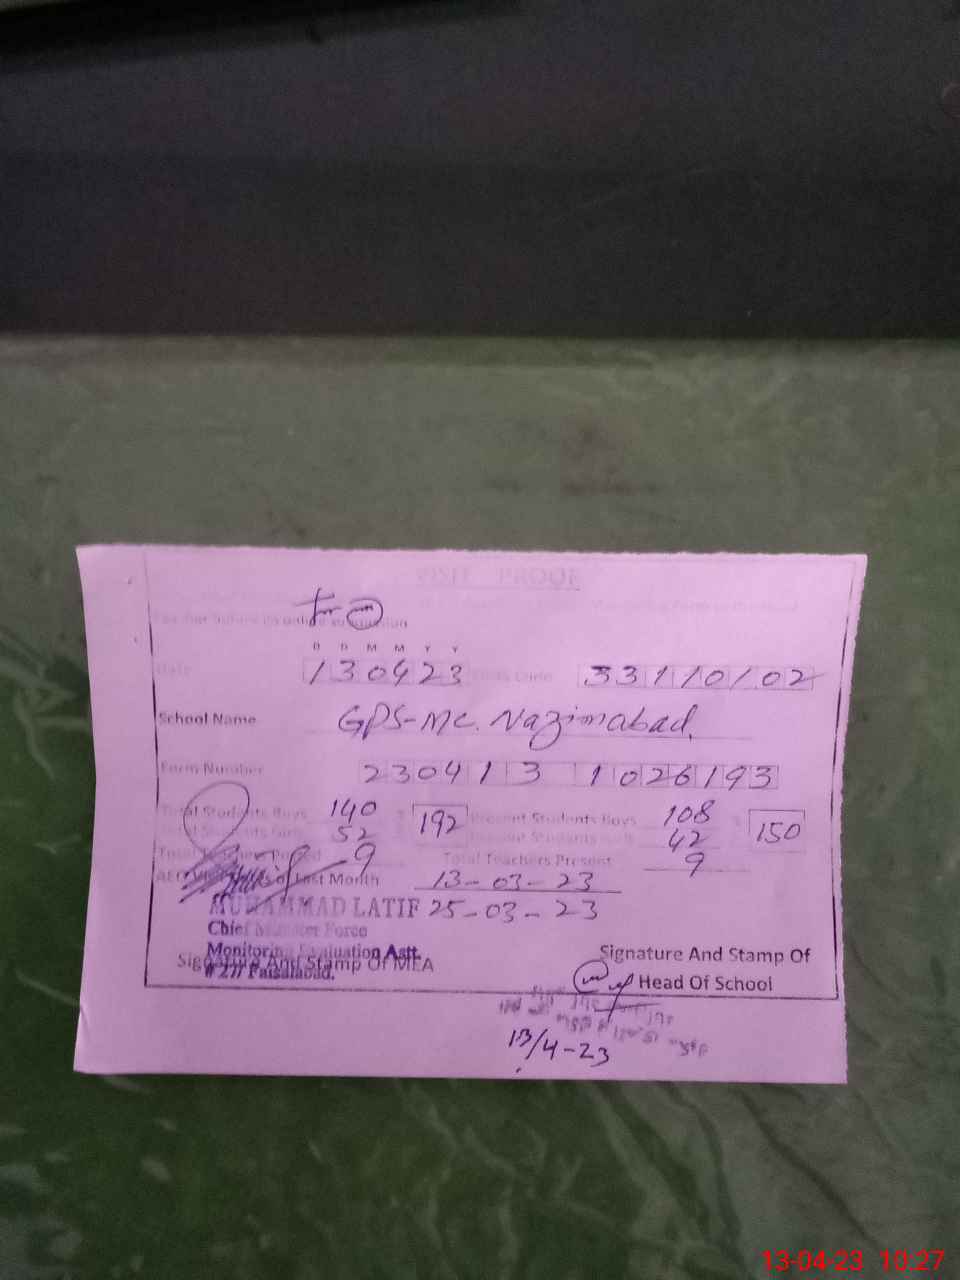 VISIT PROOF
D D M M Y Y
Date 130423 Code 33110102
School Name GPS-MC. Nazimabad.
Form Number 230413 1026193
Total Students Boys 140 192 Present Students Boys 108 150
Total Students Girls 52 Present Students Girls 42
Total Teachers Posted 9 Total Teachers Present 9
AEO Visit of Last Month 13-03-23
MUHAMMAD LATIF 25-03-23
Chief Minister Force
Monitoring Evaluation Astt.
# 277 Faisalabad.
Signature And Stamp Of MEA
Signature And Stamp Of
Head Of School
13/4-23
13-04-23 10:27